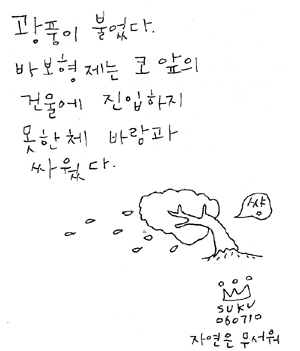 광풍이 불었다.
바보형제는 코 앞의
건물에 진입하지
못한체 바람과
싸웠다.
샥
SUKU
060710
자연은 무서워